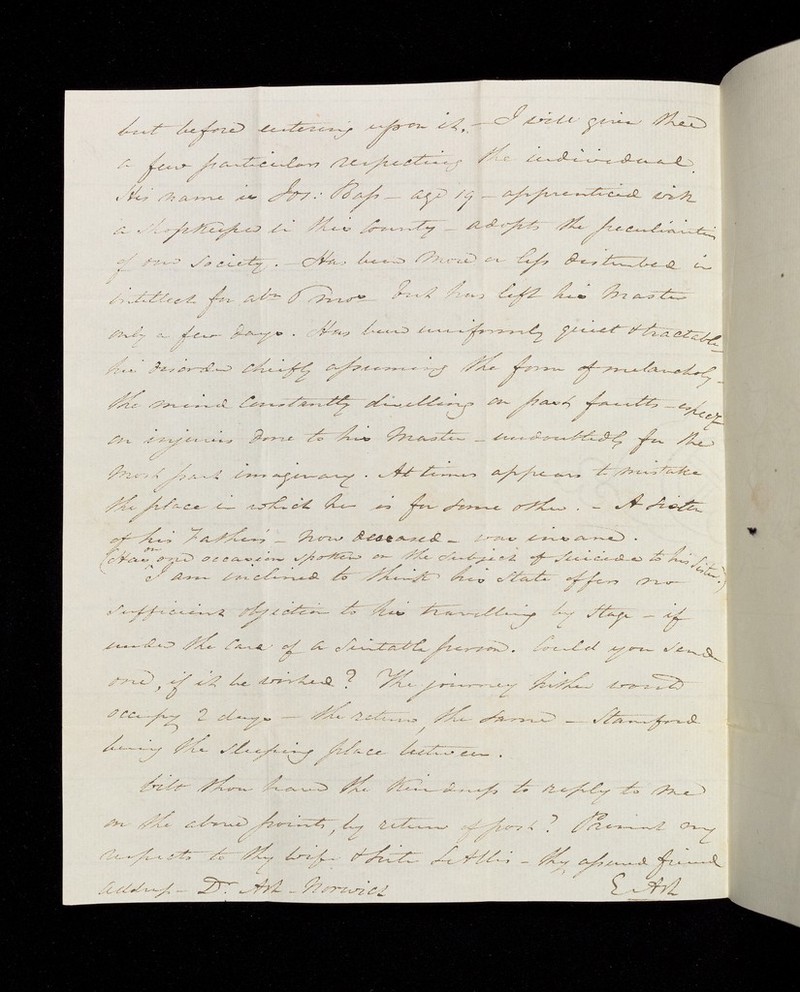 but before entering upon it. — I will give thee
a few particulars respecting the individual.
His name is Jos: Bass — age 19 — apprenticed with
a Shopkeeper in this County — adopts the peculiarities
of our Society. — Has been more or less disturbed in
intellect for abt 6 mos but has left his Master
only a few days. Has been uniformly quiet & tractable —
his disorder chiefly assuming the form of melancholy —
the mind constantly dwelling on past faults — especy
on injuries done to his Master — undoubtedly for the
most part imaginary. At times appears to mistake
the place in which he is for some other. — A Sister
of his Father's — now deceased — was insane.
(Has on one occasion spoken on the subject of Suicide to his Sister.)
I am inclined to think his state offers no
sufficient objection to his travelling by Stage — if
under the care of a suitable person. Could you send
one, if it be wished? The journey hither would
occupy 2 days — the return, the same — Stamford
being the sleeping place between.
Wilt thou have the kindness to reply to me
on the above points, by return of post? Present my
respects to thy wife & Sister S Allis — thy assured friend
address — Dr. Ash — Norwich E. Ash